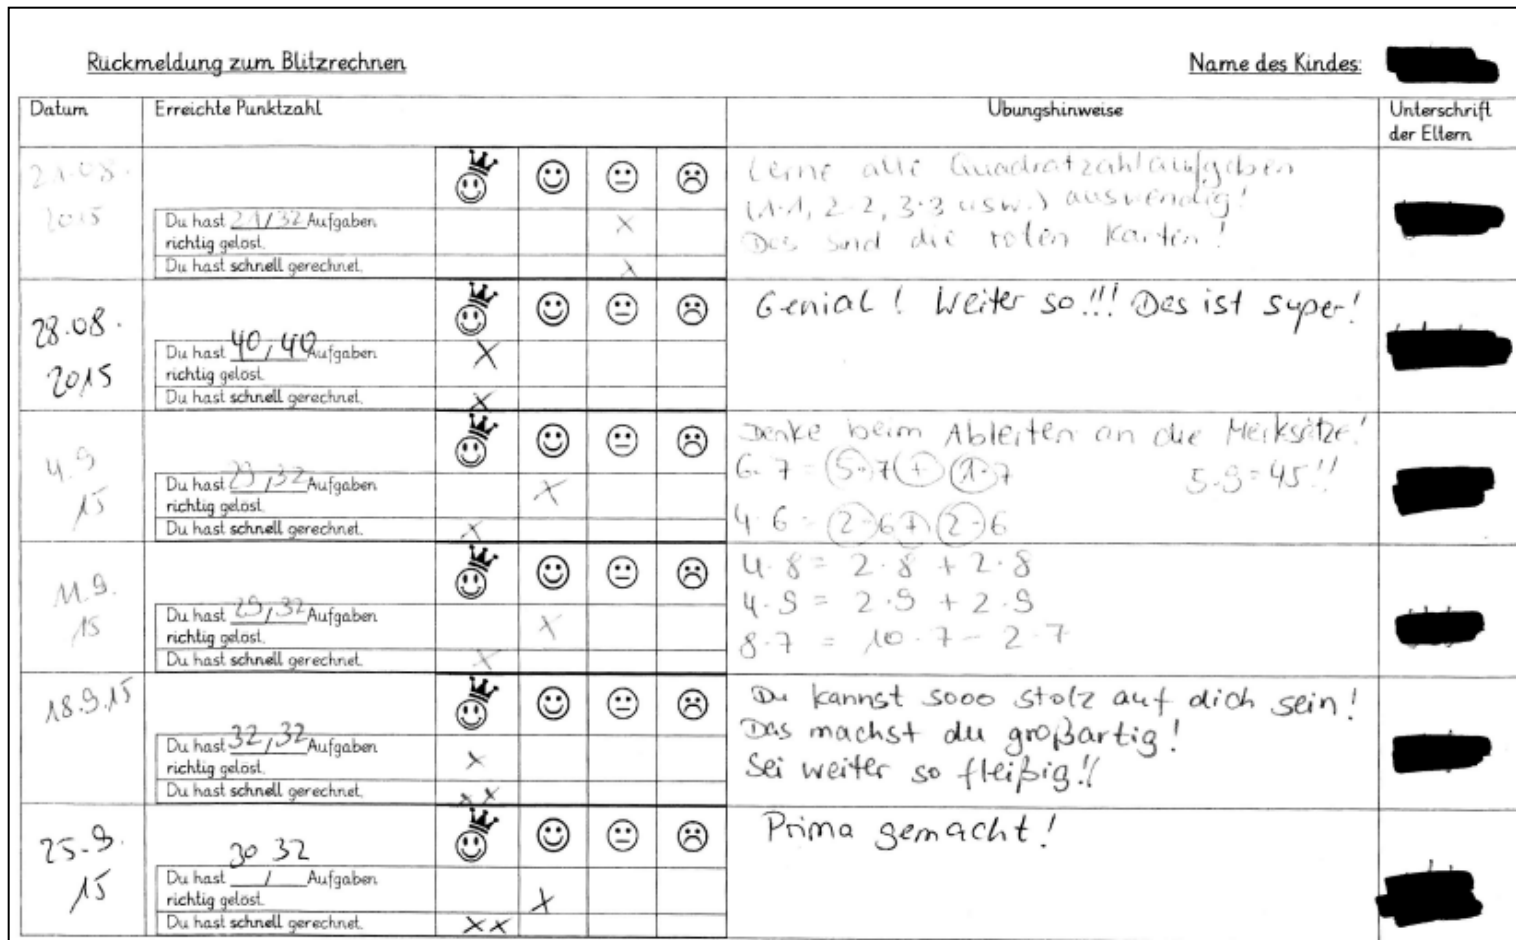 Rückmeldung zum Blitzrechnen
Name des Kindes:
Datum
Erreichte Punktzahl
Übungshinweise
Unterschrift
der Eltern
21.08.
2015
Du hast 21/32 Aufgaben
richtig gelöst.
Du hast schnell gerechnet.
Lerne alle Quadratzahlaufgaben
(1·1, 2·2, 3·3 usw.) auswendig!
Das sind die roten Karten!
28.08.
2015
Du hast 40/40 Aufgaben
richtig gelöst.
Du hast schnell gerechnet.
Genial! Weiter so!!! Das ist super!
4.9
15
Du hast 29/32 Aufgaben
richtig gelöst.
Du hast schnell gerechnet.
Denke beim Ableiten an die Merksätze!
6·7 = 5·7 + 1·7 5·9=45!!
4·6 = 2·6 + 2·6
11.9.
15
Du hast 29/32 Aufgaben
richtig gelöst.
Du hast schnell gerechnet.
4·8 = 2·8 + 2·8
4·9 = 2·9 + 2·9
8·7 = 10·7 - 2·7
18.9.15
Du hast 32/32 Aufgaben
richtig gelöst.
Du hast schnell gerechnet.
Du kannst sooo stolz auf dich sein!
Das machst du großartig!
Sei weiter so fleißig!!
25.9.
15
30 32
Du hast / Aufgaben
richtig gelöst.
Du hast schnell gerechnet.
Prima gemacht!